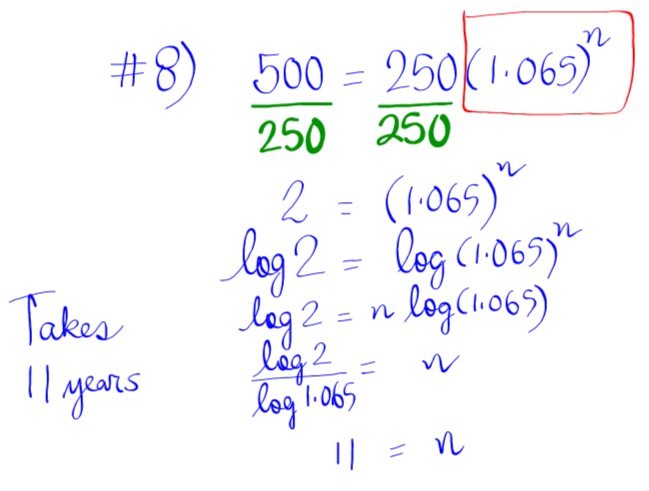 #8) 500 = 250 (1.065)^n
250 250
2 = (1.065)^n
log 2 = log (1.065)^n
log 2 = n log(1.065)
log 2 / log 1.065 = n
11 = n
Takes
11 years